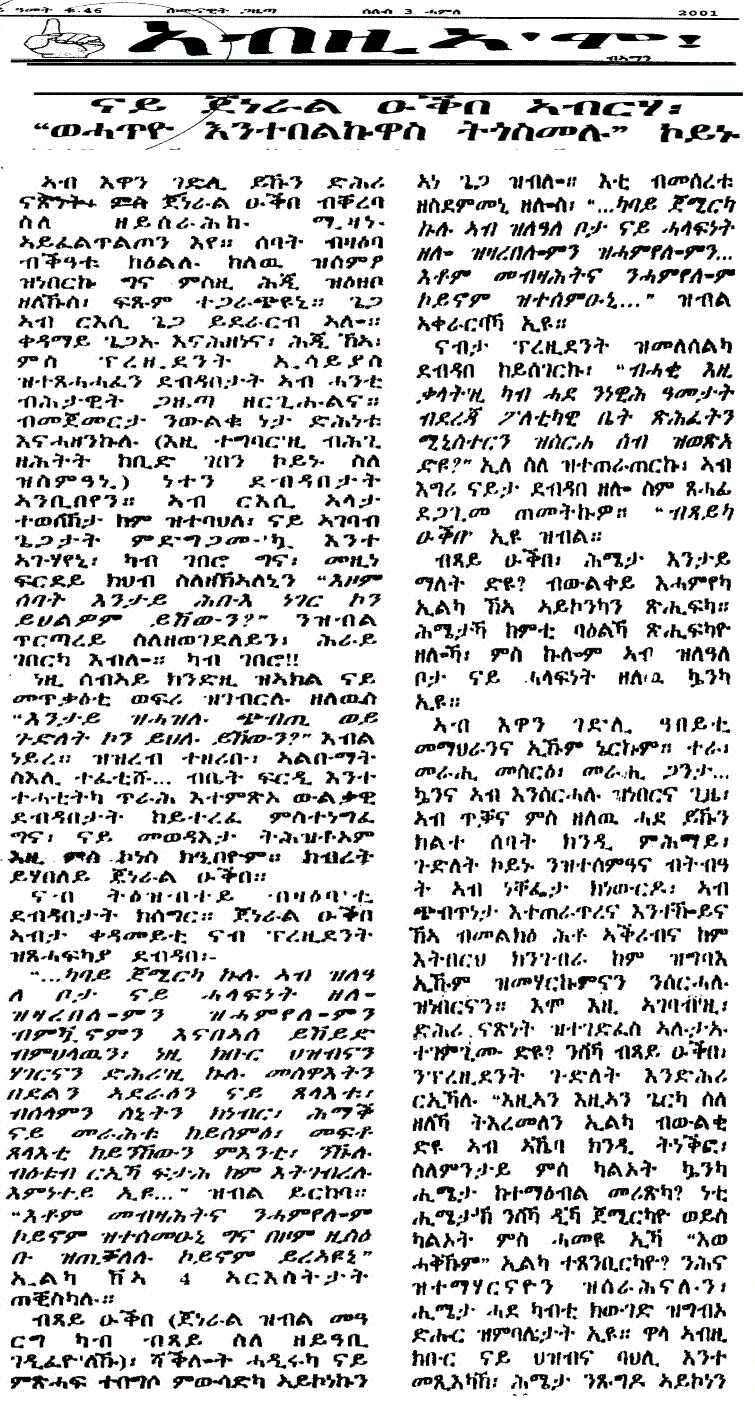 ዓመት ቁ.46 ሰሙናዊት ጋዜጣ ሰሉስ 3 ሓምለ 2001
ኣብዚኣ'ሞ፡
ብኣማን
ናይ ጀነራል ዑቕበ ኣብርሃ፡
“ወሓጥዮ እንተበልኩዋስ ትጎስመሉ” ኮይኑ
ኣብ እዋን ገድሊ ይኹን ድሕሪ
ናጽነት፡ ምስ ጀነራል ዑቕበ ብቐረባ
ስለ ዘይሰራሕኩ ሚዛነ-
ኣይፈልጥልጦን እየ። ሰባት ብዛዕባ
ብቕዓቱ ክዕልሉ ከለዉ ዝሰምዖ
ዝነበርኩ ግና ምስዚ ሕጂ ዝዕዘቦ
ዘለኹስ፡ ፍጹም ተጋራጭዩኒ። ጌጋ
ኣብ ርእሲ ጌጋ ይደራርብ ኣሎ።
ቀዳማይ ጌጋኡ እናሕዘነና፡ ሕጂ ኸኣ፡
ምስ ፕረዚደንት ኢሳይያስ
ዝተጸሓሓፈን ደብዳበታት ኣብ ሓንቲ
ብሕታዊት ጋዜጣ ዘርጊሑልና።
ብመጀመርታ ንውልቁ ነታ ድሕነቱ
እናሓዘንኩሉ (እዚ ተግባር'ዚ ብሕጊ
ዘሕትት ከቢድ ገበን ኮይኑ ስለ
ዝስምዓኒ) ነተን ደብዳበታት
ኣንቢበየን። ኣብ ርእሲ ኣላታ
ተወሰኽታ ከም ዝተባህለ፡ ናይ ኣገባብ
ጌጋታት ምድግጋሙ'ኳ እንተ
ኣጉሃየኒ፡ ካብ ገበሮ ግና፡ መዚነ
ፍርደይ ክህብ ስለዘኽኣለኒን “እዞም
ሰባት እንታይ ሕቡእ ነገር ኮን
ይህልዎም ይኸውን?” ንዝብል
ጥርጣረይ ስለዘወገደለይን፡ ሕራይ
ገበርካ እብሎ። ካብ ገበሮ!!
ነዚ ሰብኣይ ክንድዚ ዝኣክል ናይ
መጥቃዕቲ ወፍሪ ዝገብርሉ ዘለዉስ
“እንታይ ዝሓዝሉ ጭብጢ ወይ
ጉድለት ኮን ይህሉ ይኸውን?” እብል
ነይረ። ዝዝረብ ተዘሪቡ፡ ኣልቡማት
ስእሊ ተፈቲሹ... ብቤት ፍርዲ እንተ
ተሓቲትካ ጥራሕ እተምጽኦ ውልቃዊ
ደብዳበታት ከይተረፈ ምስተነግፈ
ግና፡ ናይ መወዳእታ ትሕዝቶኦም
እዚ ምስ ኮነስ ክዒበዮም። ክብረት
ይሃበለይ ጀነራል ዑቕበ።
ናብ ትዕዝብተይ ብዛዕባ'ቲ
ደብዳበታት ክሰግር። ጀነራል ዑቕበ
ኣብታ ቀዳመይቲ ናብ ፕረዚደንት
ዝጸሓፍካያ ደብዳበ፡-
“...ካባይ ጀሚርካ ኩሉ ኣብ ዝለዓ
ለ ቦታ ናይ ሓላፍነት ዘሎ-
ዝዛረበሎ-ምን ዝሓምየሎ-ምን
ብምዃኖምን እናበኣሰ ይኸይድ
ብምህላዉን፡ ነዚ ክቡር ህዝብናን
ሃገርናን ድሕሪ'ዚ ኩሉ መስዋእትን
በደልን ኣደራዕን ናይ ጸላእቱ፡
ብሰላምን ስኒትን ክነብር፡ ሕማቕ
ናይ መራሕቱ ከይሰምዕ፡ መፍቶ
ጸላእቲ ከይንኸውን ምእንቲ፡ ንኹሉ
ብዕቱብ ርኢኻ ፍታሕ ከም እትገብረሉ
እምነተይ ኢዩ...” ዝብል ይርከብ።
“እቶም መብዛሕትና ንሓምየሎ-ም
ኮይኖም ዝተሰመዑኒ ግና በዞም ዚስዕ
ቡ ዝጢቓለሉ ኮይኖም ይረኣዩኒ”
ኢልካ ኸኣ 4 ኣርእስትታት
ጠቒስካሉ።
ብጻይ ዑቕበ (ጀነራል ዝብል መዓ
ርግ ካብ ብጻይ ስለ ዘይዓቢ
ገዲፈዮ'ለኹ)፡ ሻቕሎት ሓዲሩካ ናይ
ምጽሓፍ ተበግሶ ምውሳድካ ኣይኮነኩን
ኣነ ጌጋ ዝብሎ። እቲ ብመሰረቱ
ዘስደምመኒ ዘሎስ፡ “...ካባይ ጀሚርካ
ኩሉ ኣብ ዝለዓለ ቦታ ናይ ሓላፍነት
ዘሎ ዝዛረበሎ-ምን ዝሓምየሎ-ምን...
እቶም መብዛሕትና ንሓምየሎ-ም
ኮይኖም ዝተሰምዑኒ...” ዝብል
ኣቀራርባኻ ኢዩ።
ናብታ ፕረዚደንት ዝመለሰልካ
ደብዳበ ከይሰገርኩ፡ “ብሓቂ እዚ
ቃላት'ዚ ካብ ሓደ ንነዊሕ ዓመታት
ብደረጃ ፖለቲካዊ ቤት ጽሕፈትን
ሚኒስተርን ዝሰርሐ ሰብ ዝወጽአ
ድዩ?” ኢለ ስለ ዝተጠራጠርኩ፡ ኣብ
እግሪ ናይታ ደብዳበ ዘሎ ስም ጸሓፊ
ደጋጊመ ጠመትኩዎ። “ብጻይካ
ዑቕበ” ኢዩ ዝብል።
ብጻይ ዑቕበ፡ ሕሜታ እንታይ
ማለት ድዩ? ብውልቀይ እሓምየካ
ኢልካ ኸኣ ኣይኮንካን ጽሒፍካ።
ሕሜታኻ ከምቲ ባዕልኻ ጽሒፍካዮ
ዘሎኻ፡ ምስ ኩሎም ኣብ ዝለዓለ
ቦታ ናይ ሓላፍነት ዘለዉ ኴንካ
ኢዩ።
ኣብ እዋን ገድሊ ዓበይቲ
መማህራንና ኢኹም ኔርኩም። ተራ፡
መራሒ መስርዕ፡ መራሒ ጋንታ...
ኴንና ኣብ እንሰርሓሉ ዝነበርና ጊዜ፡
ኣብ ጥቓና ምስ ዘለዉ ሓደ ይኹን
ክልተ ሰባት ክንዲ ምሕማይ፡
ጉድለት ኮይኑ ንዝተሰምዓና ብትብዓ
ት ኣብ ነቐፌታ ክነውርዶ፡ ኣብ
ጭብጥነታ እተጠራጥረና እንተኾይና
ኸኣ ብመልክዕ ሕቶ ኣቕሪብና ከም
እትበርህ ክንገብራ ከም ዝግባእ
ኢኹም ዝመሃርኩምናን ንሰርሓሉ
ዝነበርናን። እሞ እዚ ኣገባብ'ዚ፡
ድሕሪ ናጽነት ዝተገድፈስ ኣሉታኡ
ተገምጊሙ ድዩ? ንስኻ ብጻይ ዑቕበ፡
ንፕረዚደንት ጉድለት እንድሕሪ
ርኢኻሉ “እዚኣን እዚኣን ጌርካ ስለ
ዘለኻ ትእረመለን ኢልካ ብውልቂ
ድዩ ኣብ ኣኼባ ክንዲ ትነቕፎ፡
ስለምንታይ ምስ ካልኦት ኴንካ
ሒሜታ ከተማዕብል መሪጽካ? ነቲ
ሒሜታ'ኸ ንስኻ ዲኻ ጀሚርካዮ ወይስ
ካልኦት ምስ ሓመዩ ኢኻ “እወ
ሓቅኹም” ኢልካ ተጸንቢርካዮ? ንሕና
ዝተማሃርናዮን ዝሰራሕናሉን፡
ሒሜታ ሓደ ካብቲ ክውገድ ዝግብኦ
ድሑር ዝምባሌታት ኢዩ። ዋላ ኣብዚ
ክቡር ናይ ህዝብና ባህሊ እንተ
መጺእካኸ፡ ሕሜታ ንጹግዶ ኣይኮነን